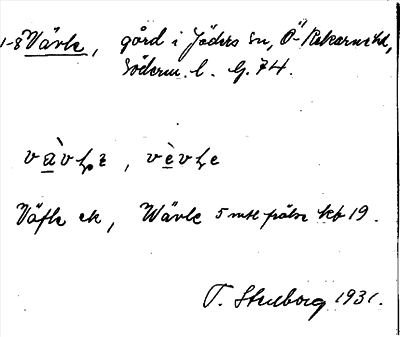 1-8 Vävle, gård i Jäders sn, Ö-Rekarne hd,
Söderm. l. G. 74.
vàvlz, vèvle
Väfle ek, Wävle 5 mtl frälse kb 19.
T. Stenborg 1931.